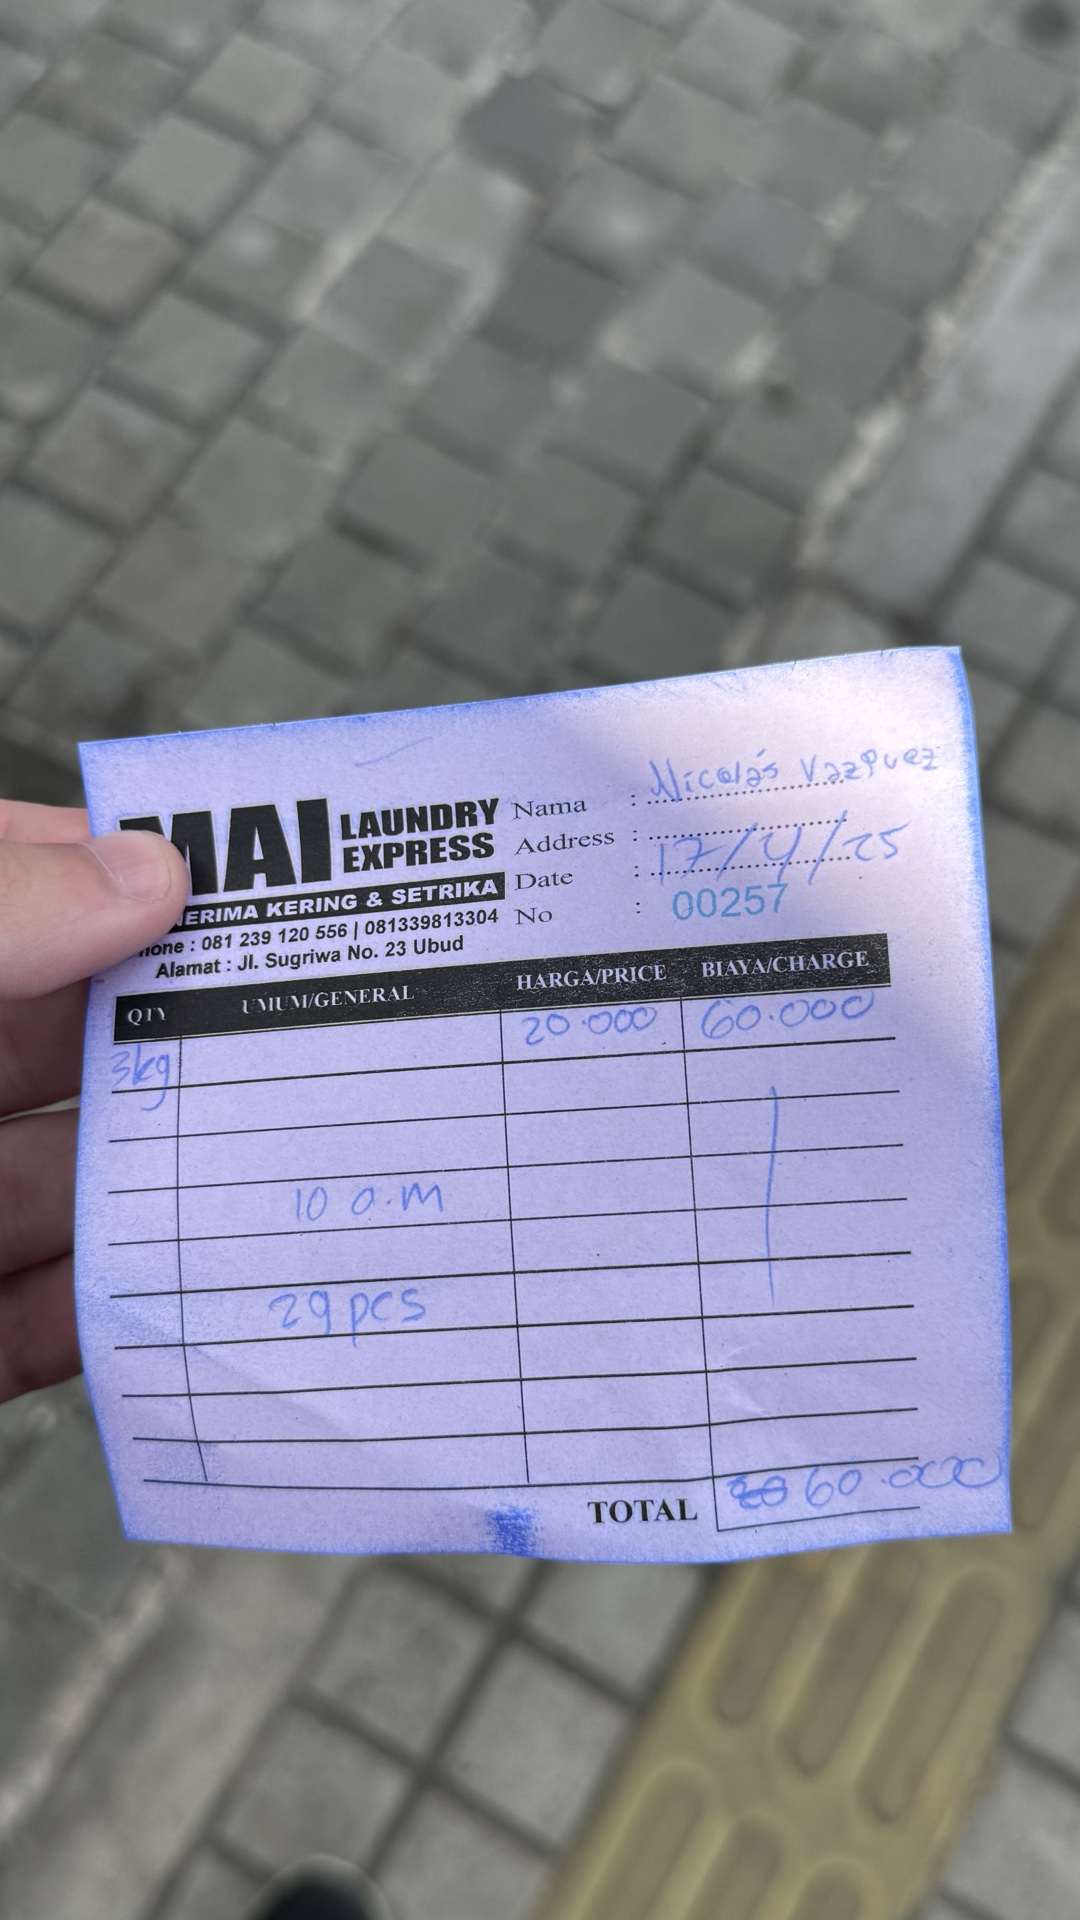 MAI LAUNDRY EXPRESS
NERIMA KERING & SETRIKA
hone : 081 239 120 556 | 081339813304
Alamat : Jl. Sugriwa No. 23 Ubud
Nama : Nicolás Vazquez
Address :
Date : 17/4/25
No : 00257
QTY UMUM/GENERAL HARGA/PRICE BIAYA/CHARGE
3kg 20.000 60.000
10 a.m
29 pcs
TOTAL 60.000